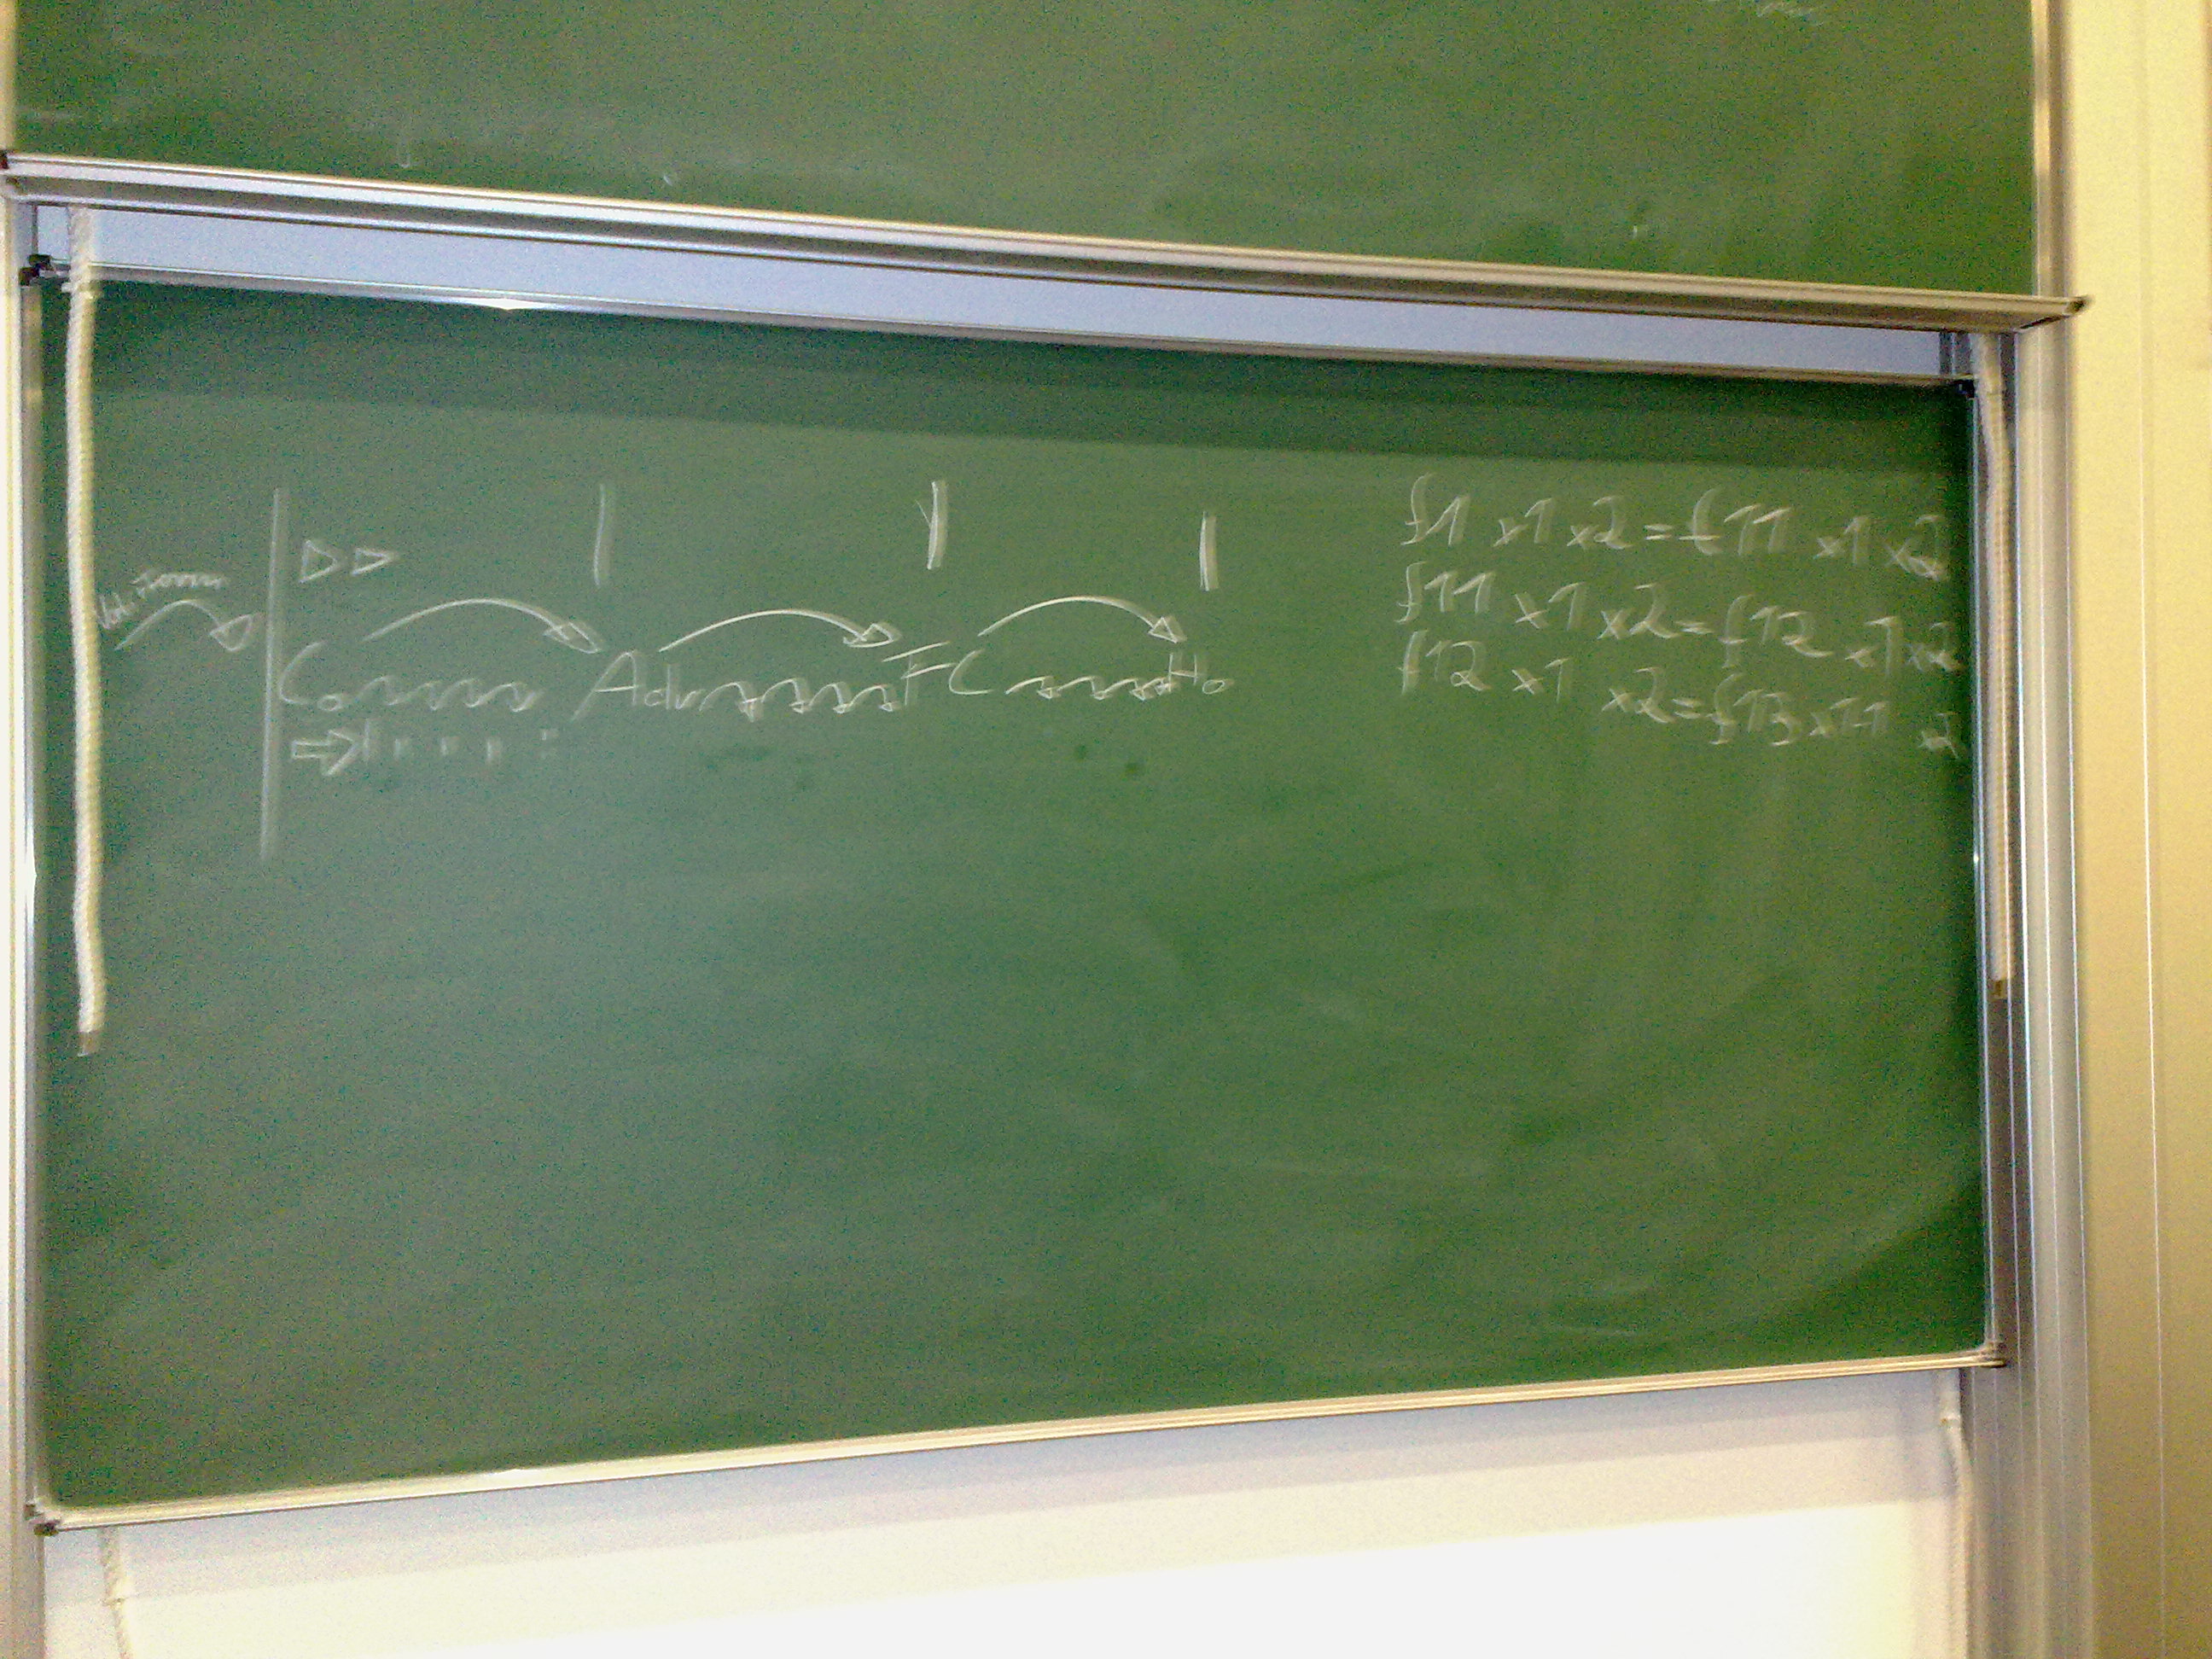 Co Adv FC Ho
f1 x1 x2 = f11 x1 x2
f11 x1 x2 = f12 x1 x2
f12 x1 x2 = f13 x11 x2